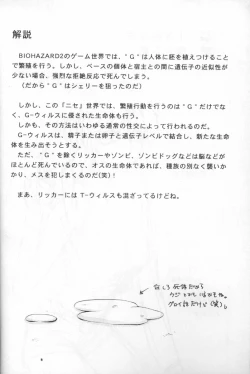 解説
BIOHAZARD2のゲーム世界では、“G”は人体に胚を植えつけること
で繁殖を行う。しかし、ベースの個体と宿主との間に遺伝子の近似性が
少ない場合、強烈な拒絶反応で死んでしまう。
（だから“G”はシェリーを狙ったのだ）
しかし、この「ニセ」世界では、繁殖行動を行うのは“G”だけでな
く、G-ウィルスに侵された生命体も行う。
しかも、その方法はいわゆる通常の性交によって行われるのだ。
G-ウィルスは、精子または卵子と遺伝子レベルで結合し、新たな生命
体を生み出そうとする。
ただ、“G”を除くリッカーやゾンビ、ゾンビドッグなどは脳などが
ほとんど死んでいるので、オスの生命体であれば、種族の別なく襲いか
かり、メスを犯しまくるのだ（笑）！
まあ、リッカーにはT-ウィルスも混ざってるけどね。
なにしろ死体だから
（笑）